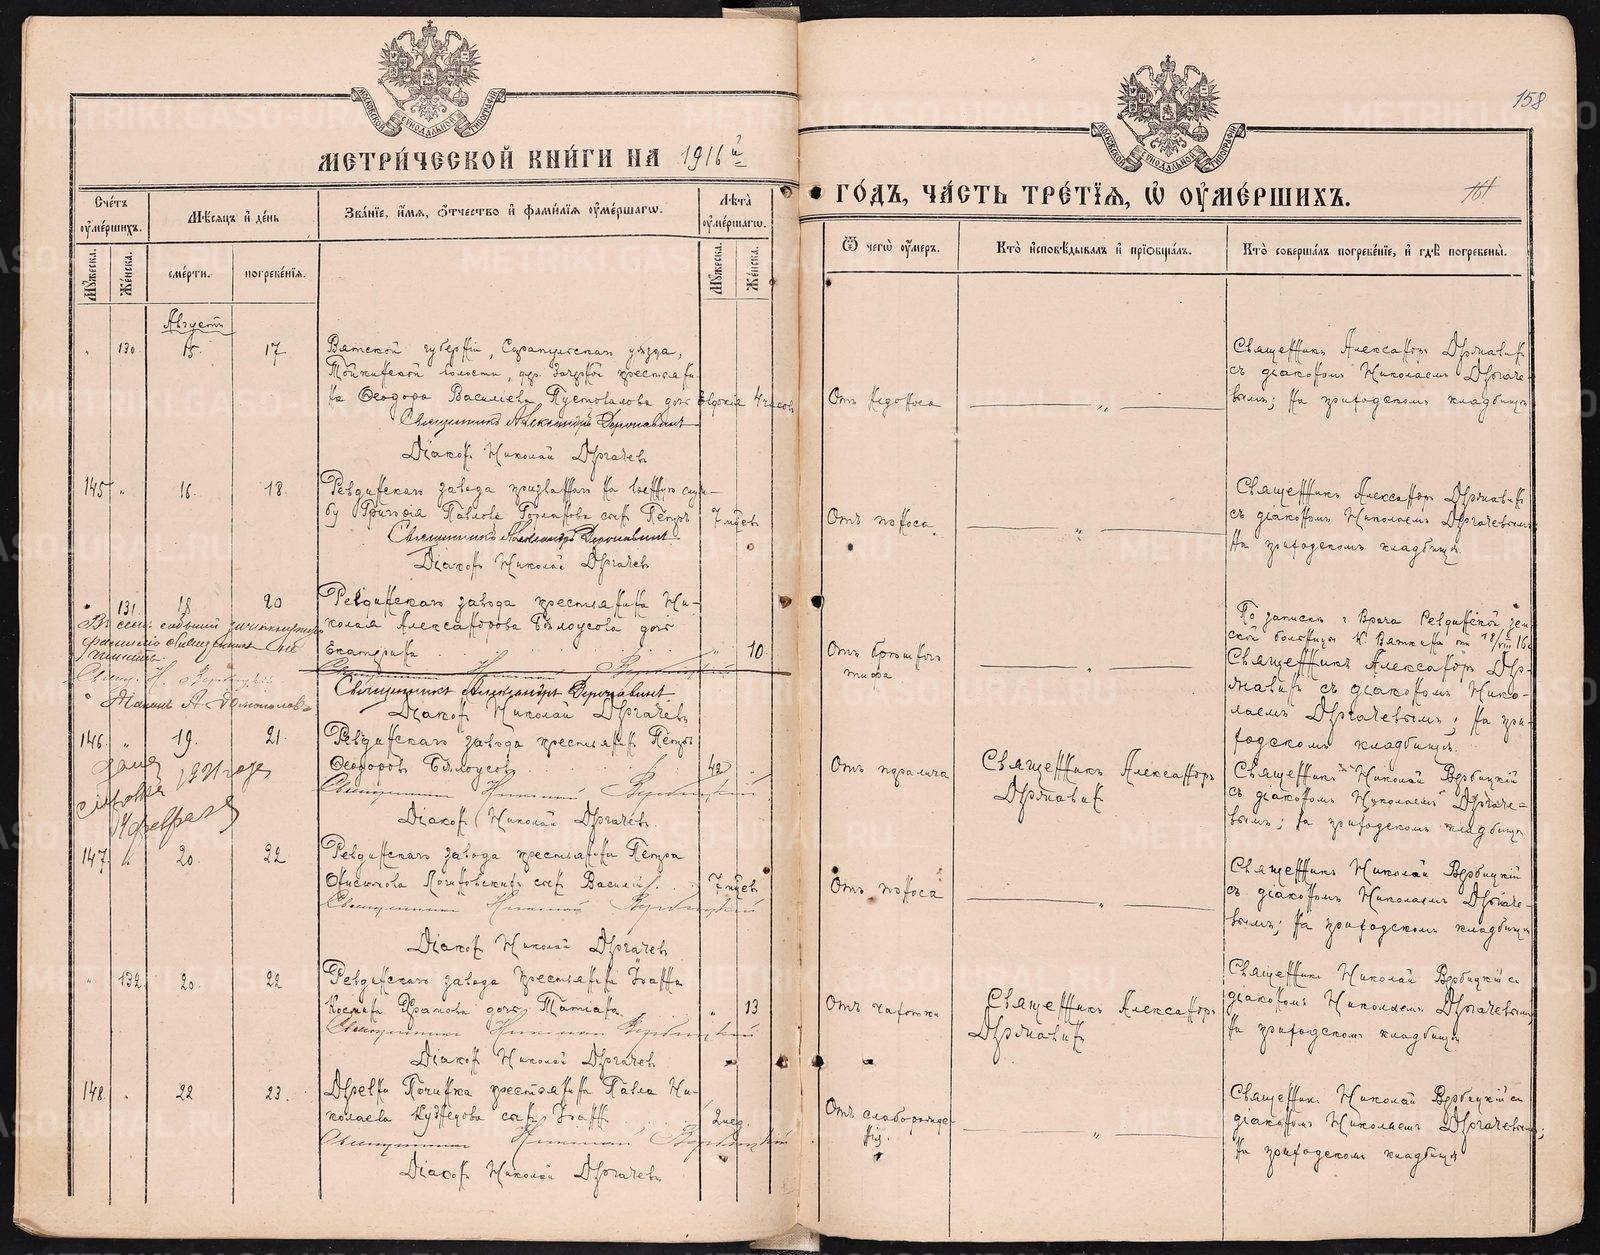 158
161
МОСКОВСКОЙ СѴНОДАЛЬНОЙ ТИПОГРАФІИ
МОСКОВСКОЙ СѴНОДАЛЬНОЙ ТИПОГРАФІИ
МЕТРИ́ЧЕСКОЙ КНИ́ГИ НА 1916 й
ГО́ДЪ, ЧА́СТЬ ТРЕ́ТЇѦ, Ѡ҆ ОУ҆МЕ́РШИХЪ.
Сче́тъ оу҆ме́ршихъ.
Мѣ́сѧцъ и҆ де́нь
Зва́нїе, и҆́мѧ, ѻ҆́тчество и҆ фами́лїѧ оу҆ме́ршагѡ.
Лѣ́та оу҆ме́ршагѡ.
Ѿ чегѡ̀ оу҆́меръ.
Кто̀ и҆сповѣ́дывалъ и҆ прїѻбща́лъ.
Кто̀ соверша́лъ погребе́нїе, и҆ гдѣ̀ погребены̀.
Мꙋ́жеска.
Же́нска.
сме́рти.
погребе́нїѧ.
Мꙋ́жеска.
Же́нска.
Августъ
" 130 15. 17
Вятской губерніи, Сарапульскаго уѣзда,
волости, дер. крестьяни-
на Ѳеодора Васильева Пустовалова дочь Евдокія 4 часовъ
Священникъ Александръ Державинъ
Діаконъ Николай Дергачевъ
Отъ недоноса
"
Священникъ Александръ Державинъ
съ діакономъ Николаемъ Дергаче-
вымъ; на приходскомъ кладбищѣ
145 " 16. 18.
Ревдинскаго завода призваннаго на военную служ-
бу Григорія Павлова сынъ Петръ 7 мцевъ
Священникъ Александръ Державинъ
Діаконъ Николай Дергачевъ
Отъ поноса
"
Священникъ Александръ Державинъ
съ діакономъ Николаемъ Дергачевымъ
на приходскомъ кладбищѣ
" 131. 18 20
Ревдинскаго завода крестьянина Ни-
колая Александрова Бѣлоусова дочь
Екатерина " 10
Священникъ Александръ Державинъ
Діаконъ Николай Дергачевъ
Отъ брюшного
тифа
"
По записки г. Врача Ревдинской зем-
ской больницы К. Вяткина от 18/VIII 16 г.
Священникъ Александръ Дер-
жавинъ съ діакономъ Нико-
лаемъ Дергачевымъ; на при-
ходскомъ кладбищѣ.
146. " 19. 21
Ревдинскаго завода крестьянинъ Петръ
Ѳеодоровъ Бѣлоусовъ 42 "
Священникъ Николай Вербицкій
Діаконъ Николай Дергачевъ.
1921 года
14 февраля
Отъ паралича
Священникъ Александръ
Державинъ
Священникъ Николай Вербицкій
съ діакономъ Николаемъ Дергаче-
вымъ; на приходскомъ кладбищѣ
147. " 20. 22
Ревдинскаго завода крестьянина Петра
сынъ Василій. 7 мцевъ
Священникъ Николай Вербицкій
Діаконъ Николай Дергачевъ
Отъ поноса
"
Священникъ Николай Вербицкій
съ діакономъ Николаемъ Дергаче-
вымъ; на приходскомъ кладбищѣ
" 132. 20. 22
Ревдинскаго завода крестьянина Іоанна
Косьмина дочь Татіана. " 13
Священникъ Николай Вербицкій
Діаконъ Николай Дергачевъ
Отъ чахотки
Священникъ Александръ
Державинъ
Священникъ Николай Вербицкій съ
діакономъ Николаемъ Дергачевымъ,
на приходскомъ кладбищѣ
148. " 22 23.
Дрвни Починка крестьянина Павла Ни-
колаева Кузнецова сынъ Іоаннъ 2 нед.
Священникъ Николай Вербицкій
Діаконъ Николай Дергачевъ
Отъ слаборожде-
нія.
"
Священникъ Николай Вербицкій съ
діакономъ Николаемъ Дергачевымъ;
на приходскомъ кладбищѣ
METRIKI.GASO-URAL.RU